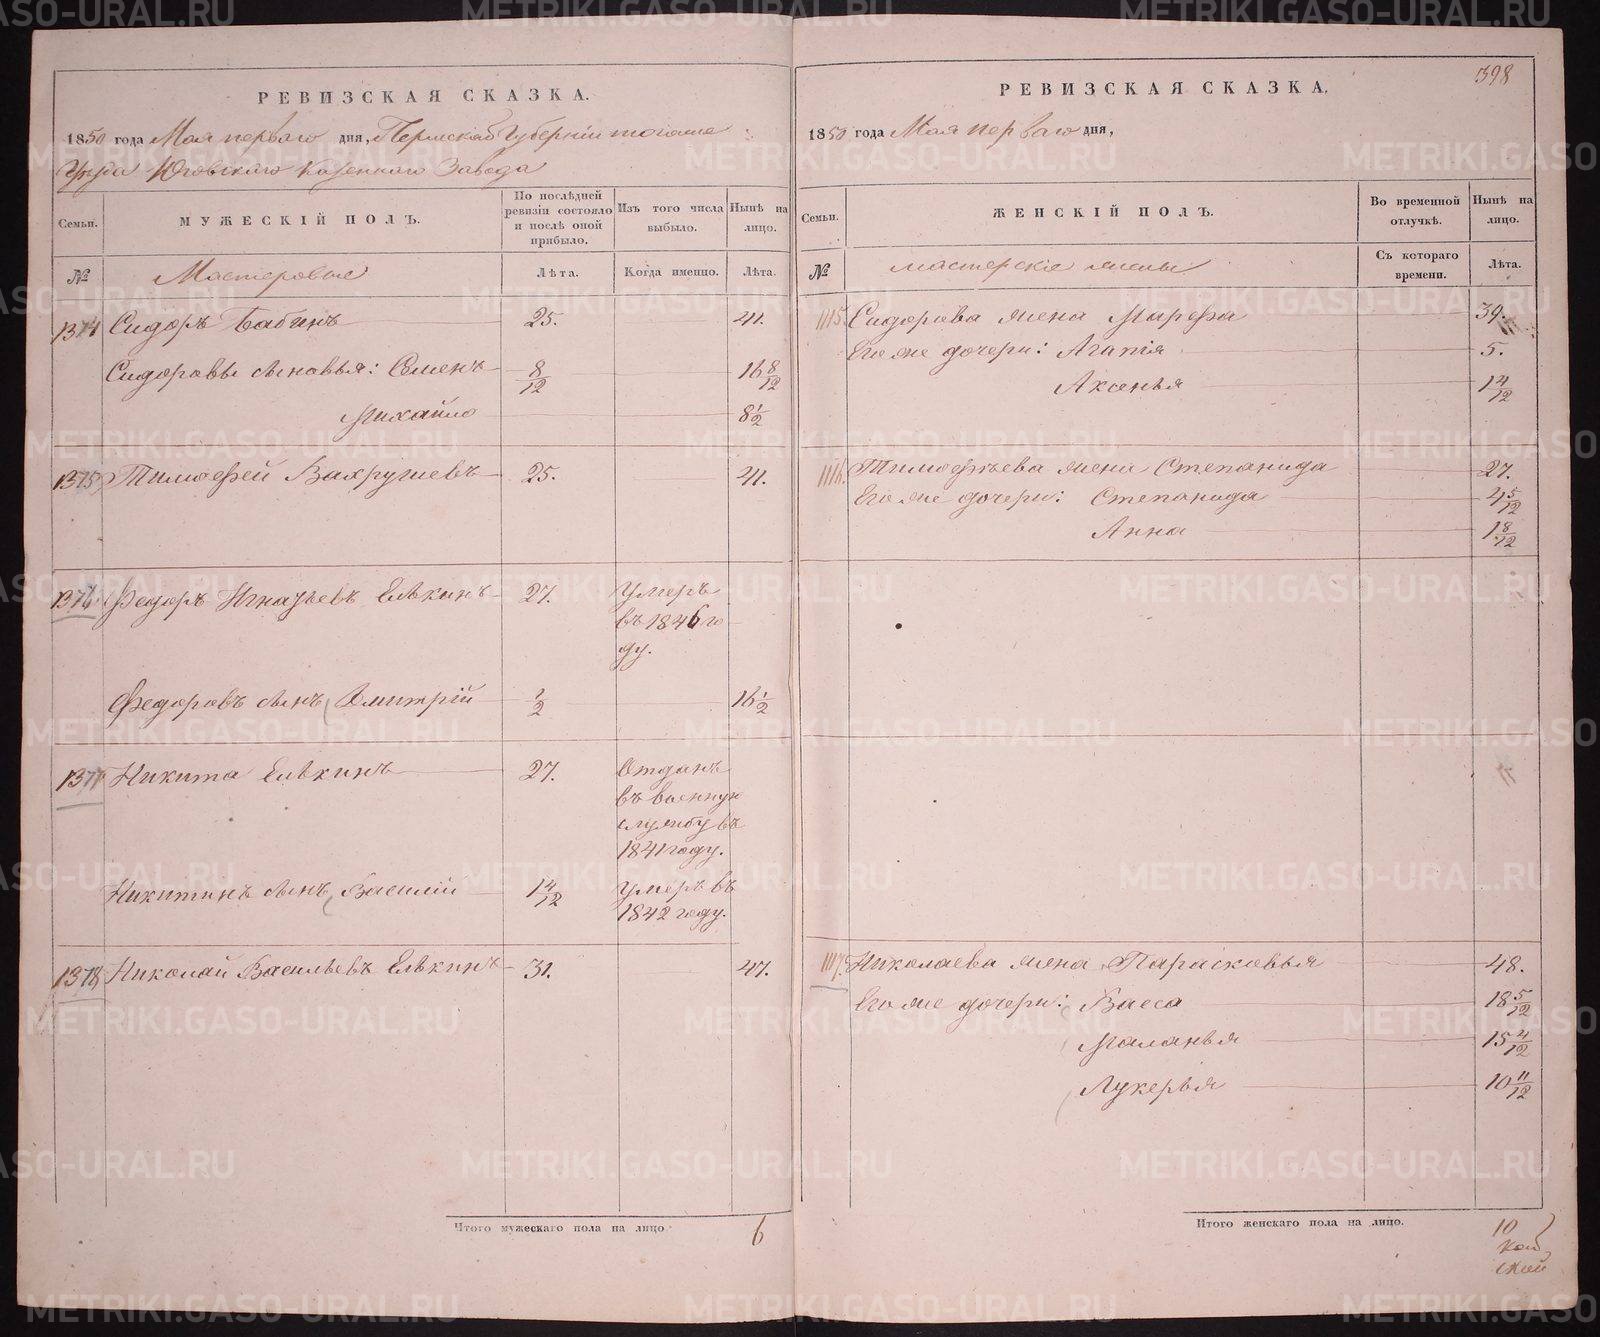 РЕВИЗСКАЯ СКАЗКА.
1850 года Мая перваго дня, Пермской Губерніи тогоже
Уезда Юговскаго Казеннаго Завода
Семьи.
МУЖЕСКІЙ ПОЛЪ.
По послѣдней ревизіи состояло и послѣ оной прибыло.
Изъ того числа выбыло.
Нынѣ на лицо.
№
Мастеровые
Лѣта.
Когда именно.
Лѣта.
1374 Сидоръ Бабинъ 25. 41.
Сидоровы сыновья: Семенъ 8/12 16 8/12
Михайло 8 1/2
1375 Тимофей Вахрушевъ 25. 41.
1376 Федоръ Игнатьевъ Елькинъ 27. Умеръ
въ 1846 го
ду.
Федоровъ сынъ Дмитрій 1/2 16 1/2
1377 Никита Елькинъ 27. Отданъ
въ военную
службу въ
1841 году.
Никитинъ сынъ Василій 1 4/12 умеръ въ
1842 году.
1378 Николай Васильевъ Елькинъ 31. 47.
Итого мужескаго пола на лицо 6
398
РЕВИЗСКАЯ СКАЗКА.
1850 года Мая перваго дня,
Семьи.
ЖЕНСКІЙ ПОЛЪ.
Во временной отлучкѣ.
Нынѣ на лицо.
№
мастерские жены
Съ котораго времени.
Лѣта.
1115. Сидорова жена Марфа 39.
Его же дочери: Агапія 5.
Аксенья 1 4/12
1116. Тимофѣева жена Степанида 27.
Его же дочери: Степанида 4 5/12
Анна 1 8/12
1117. Николаева жена Парасковья 48.
Его же дочери: Васса 18 5/12
Маланья 15 4/12
Лукерья 10 11/12
Итого женскаго пола на лицо. 10
METRIKI.GASO-URAL.RU